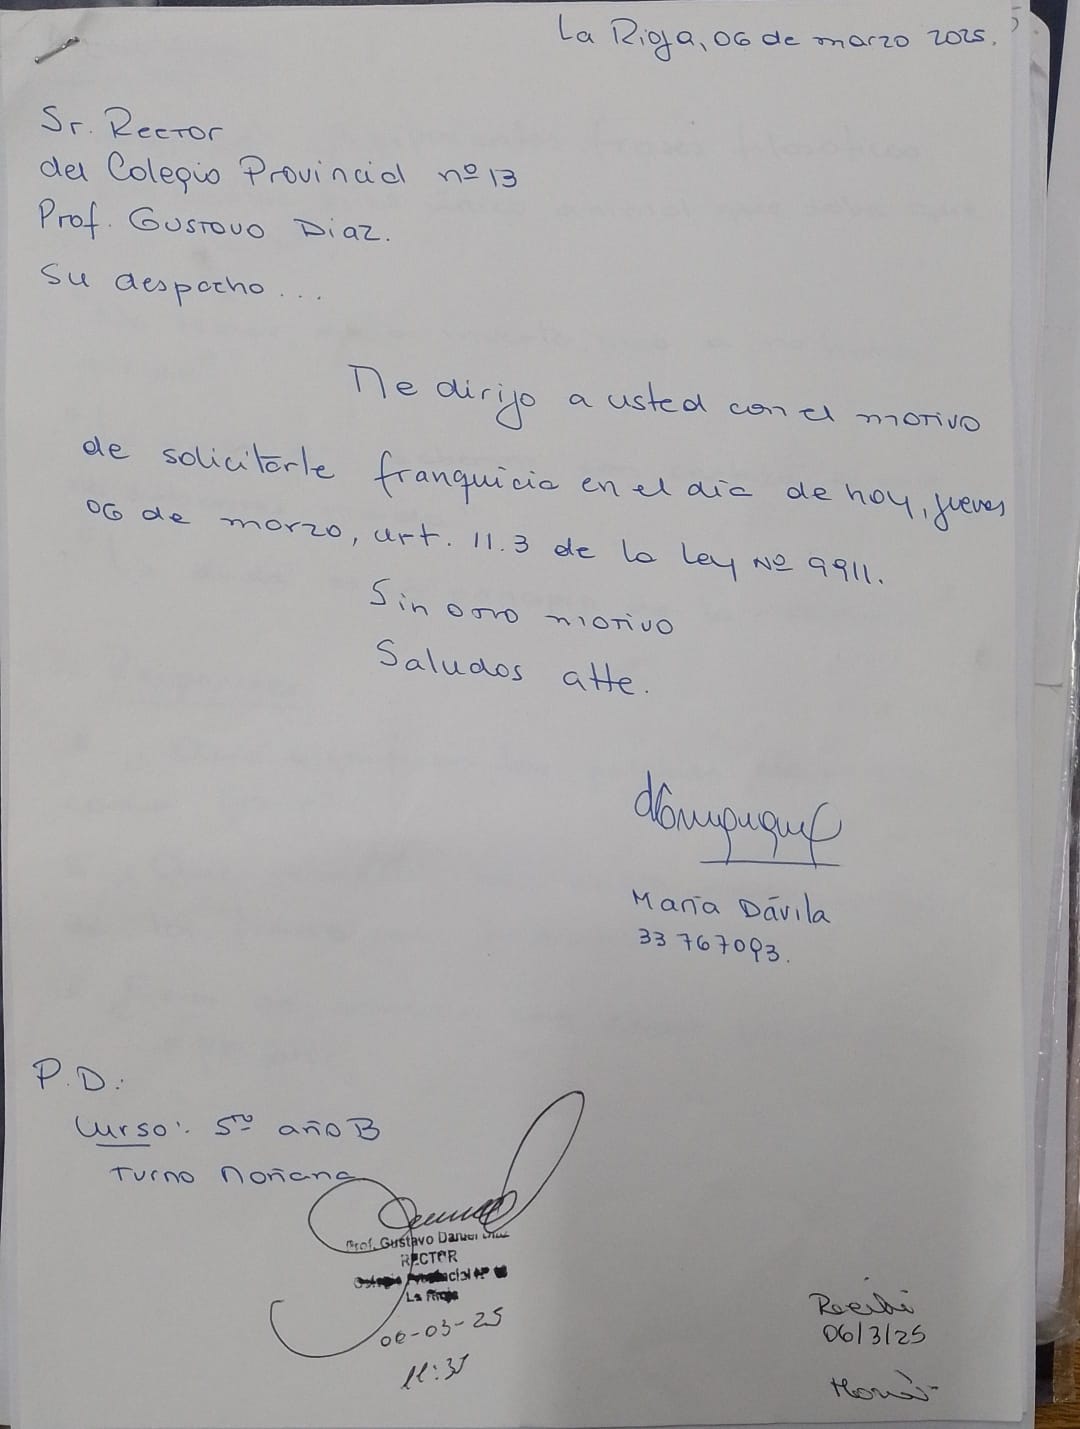 La Rioja, 06 de marzo 2025.
Sr. Rector
del Colegio Provincial nº 13
Prof. Gustavo Diaz.
Su despacho...
Me dirijo a usted con el motivo
de solicitarle franquicia en el día de hoy, jueves
06 de marzo, art. 11.3 de la ley Nº 9911.
Sin otro motivo
Saludos atte.
María Dávila
33 767093.
P.D.:
Curso: 5to año B
Turno Mañana
Prof. Gustavo Daniel Diaz
RECTOR
Colegio Provincial Nº
La Rioja
06-03-25
11:35
Recibi
06/3/25